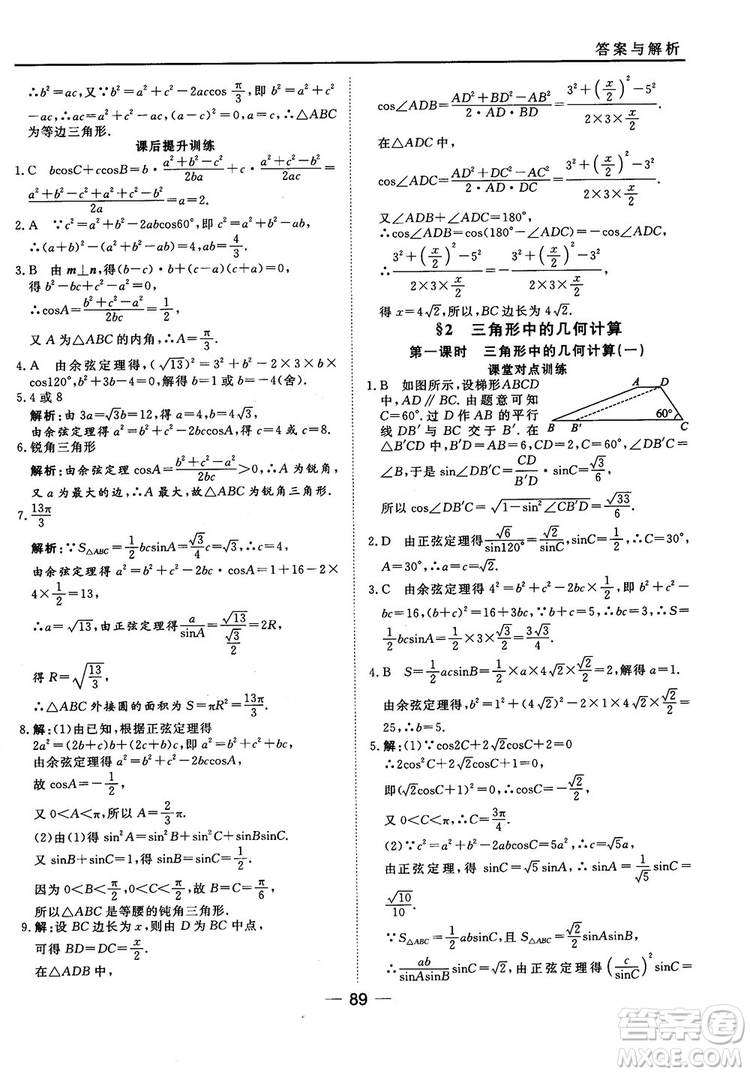 答案与解析
∴b²=ac,又∵b²=a²+c²-2accos π/3,即 b²=a²+c²
-ac,∴ac=a²+c²-ac,∴(a-c)²=0,∴a=c,∴△ABC
为等边三角形.
课后提升训练
1.C bcosC+ccosB=b·(a²+b²-c²)/(2ba)+c·(a²+c²-b²)/(2ac)=
(a²+b²-c²+a²+c²-b²)/(2a)=a=2.
2.A ∵c²=a²+b²-2abcos60°,即 c²=a²+b²-ab,
∴(a+b)²-c²=a²+b²-c²+2ab=4,ab=4/3.
3.B 由 m⊥n,得(b-c)·b+(c-a)(c+a)=0,
得 b²+c²-a²=bc,
∴cosA=(b²+c²-a²)/(2bc)=1/2.
又 A 为△ABC 的内角,∴A=π/3.
4.A 由余弦定理得,(√13)²=b²+3²-2×3×b×
cos120°,解得 b=1 或 b=-4(舍).
5.4 或 8
解析:由 3a=√3b=12,得 a=4,b=4√3,
由余弦定理得 a²=b²+c²-2bccosA,
∴c=4 或 8.
6.锐角三角形
解析:由余弦定理得 cosA=(b²+c²-a²)/(2bc)>0,∴A 为锐角,
又 a 为最大的边,∴A 最大,故△ABC 为锐角三角形.
7.13π/3
解析:∵S△ABC=1/2bcsinA=√3/4c=√3,∴c=4,
由余弦定理得,a²=b²+c²-2bc·cosA=1+16-2×
4×1/2=13,
∴a=√13,由正弦定理得 a/sinA=√13/(√3/2)=2R,
得 R=√(13/3),
∴△ABC 外接圆的面积为 S=πR²=13π/3.
8.解:(1)由已知,根据正弦定理得
2a²=(2b+c)b+(2c+b)c,即 a²=b²+c²+bc,
由余弦定理得 a²=b²+c²-2bccosA,
故 cosA=-1/2,
又 0<A<π,所以 A=2/3π.
(2)由(1)得 sin²A=sin²B+sin²C+sinBsinC.
又 sinB+sinC=1,得 sinB=sinC=1/2,
因为 0<B<π/2,0<C<π/2,故 B=C=π/6,
所以△ABC 是等腰的钝角三角形.
9.解:设 BC 边长为 x,则由 D 为 BC 中点,
可得 BD=DC=x/2,
在△ADB 中,
cos∠ADB=(AD²+BD²-AB²)/(2·AD·BD)=(3²+(x/2)²-5²)/(2×3×x/2).
在△ADC 中,
cos∠ADC=(AD²+DC²-AC²)/(2·AD·DC)=(3²+(x/2)²-3²)/(2×3×x/2).
又∠ADB+∠ADC=180°,
∴cos∠ADB=cos(180°-∠ADC)=-cos∠ADC.
∴(3²+(x/2)²-5²)/(2×3×x/2)=-(3²+(x/2)²-3²)/(2×3×x/2).
得 x=4√2,所以,BC边长为4√2.
§2 三角形中的几何计算
第一课时 三角形中的几何计算(一)
课堂对点训练
1.B 如图所示,设梯形ABCD
中,AD∥BC.由题意可知
C=60°.过 D 作 AB 的平行
线 DB′与 BC 交于 B′.在
△B′DC 中,B′D=6,CD=2,
于是,sin∠CB′D=CD/B′D·sin60°=√3/6,
所以 cos∠DB′C=√(1-sin²∠CB′D)=√33/6.
A D B B′ 60° C
2.D 由正弦定理得√6/sin120°=√2/sinC,∴C=30°,
A=30°,∴a=c=√2.
3.C 由余弦定理得cosA=(b²+c²-a²)/(2bc)=((b+c)²-2bc-a²)/(2bc)
=1/2,(b+c)²=16-3+3bc,∴bc=3,∴S=
1/2bcsinA=1/2×3×√3/2=3√3/4.
4.B S=1/2acsinB=1/2×a×4√2×√2/2=2,解得 a=1.
由余弦定理得,b²=1²+(4√2)²-2×1×4√2×√2/2=
25,∴b=5.
5.解:(1)∵cos2C+2√2cosC+2=0
∴2cos²C+2√2cosC+1=0,
即(√2cosC+1)²=0,∴cosC=-√2/2
又 0<C<π,∴C=3π/4.
(2)∵c²=a²+b²-2abcosC=5a²,∴c=√5a,
由正弦定理,得 sinC=√5sinA,∴sinA=1/√5sinC=
√10/10.
∵S△ABC=1/2absinC,且 S△ABC=√2/2sinAsinB,
∴ab/(sinAsinB)sinC=√2,由正弦定理得(c/sinC)²sinC=√2,
89
答案圈
MXQE.COM